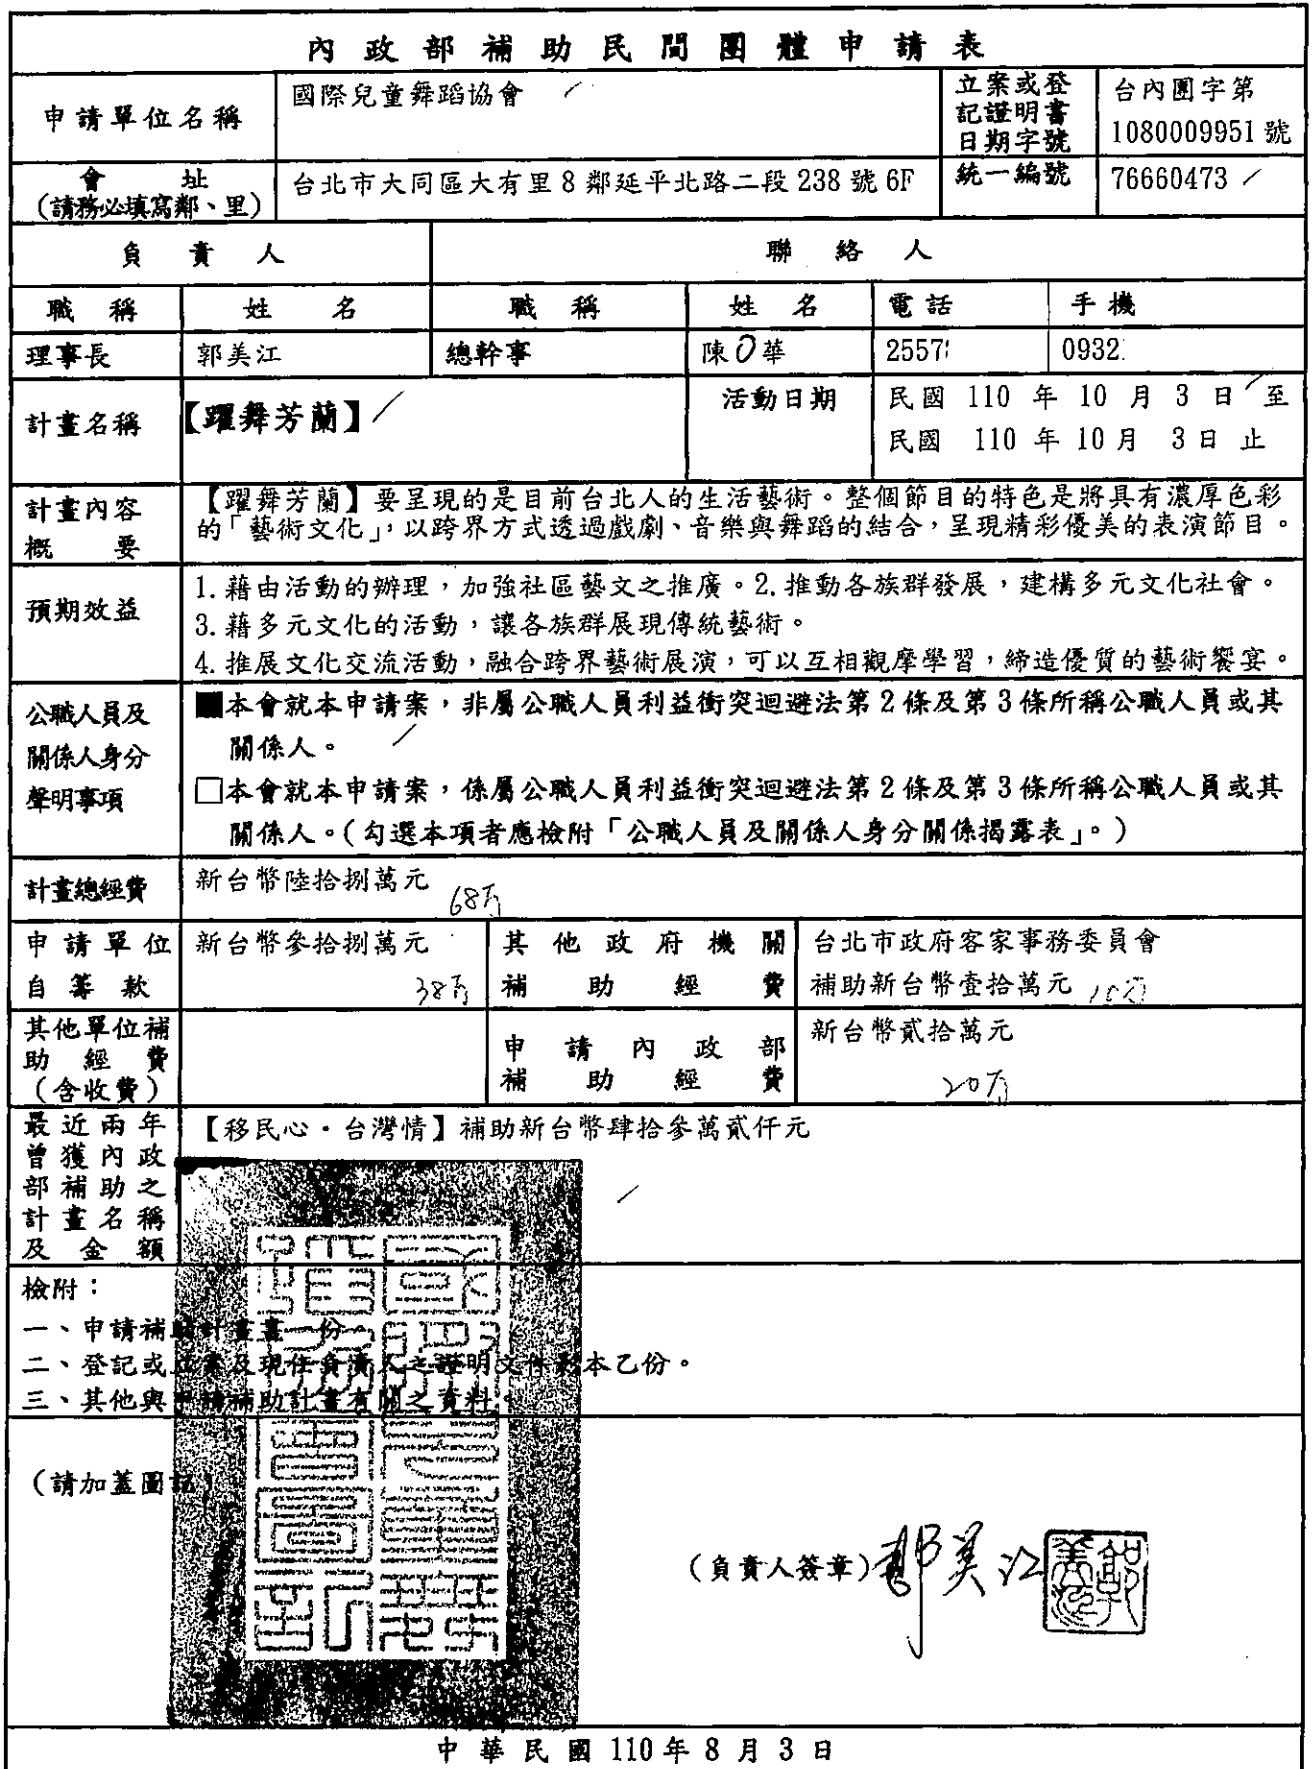 內政部補助民間團體申請表
申請單位名稱
國際兒童舞蹈協會
立案或登
記證明書
日期字號
台內團字第
1080009951 號
會 址
(請務必填寫鄰、里)
台北市大同區大有里 8 鄰延平北路二段 238 號 6F
統一編號
76660473
負 責 人
聯 絡 人
職 稱
姓 名
職 稱
姓 名
電話
手機
理事長
郭美江
總幹事
陳O華
2557
0932
計畫名稱
【躍舞芳蘭】
活動日期
民國 110 年 10 月 3 日 至
民國 110 年 10 月 3 日 止
計畫內容
概 要
【躍舞芳蘭】要呈現的是目前台北人的生活藝術。整個節目的特色是將具有濃厚色彩
的「藝術文化」，以跨界方式透過戲劇、音樂與舞蹈的結合，呈現精彩優美的表演節目。
預期效益
1. 藉由活動的辦理，加強社區藝文之推廣。2. 推動各族群發展，建構多元文化社會。
3. 藉多元文化的活動，讓各族群展現傳統藝術。
4. 推展文化交流活動，融合跨界藝術展演，可以互相觀摩學習，締造優質的藝術饗宴。
公職人員及
關係人身分
聲明事項
■本會就本申請案，非屬公職人員利益衝突迴避法第 2 條及第 3 條所稱公職人員或其
關係人。
□本會就本申請案，係屬公職人員利益衝突迴避法第 2 條及第 3 條所稱公職人員或其
關係人。(勾選本項者應檢附「公職人員及關係人身分關係揭露表」。)
計畫總經費
新台幣陸拾捌萬元
68万
申請單位
自籌款
新台幣參拾捌萬元
38万
其他政府機關
補助經費
台北市政府客家事務委員會
補助新台幣壹拾萬元 10万
其他單位補
助經費
(含收費)
申請內政部
補助經費
新台幣貳拾萬元
20万
最近兩年
曾獲內政
部補助之
計畫名稱
及金額
【移民心·台灣情】補助新台幣肆拾參萬貳仟元
檢附：
一、申請補助計畫書一份。
二、登記或立案及現任負責人之證明文件影本乙份。
三、其他與申請補助計畫有關之資料。
(請加蓋圖記)
(負責人簽章)郭美江
中華民國 110 年 8 月 3 日